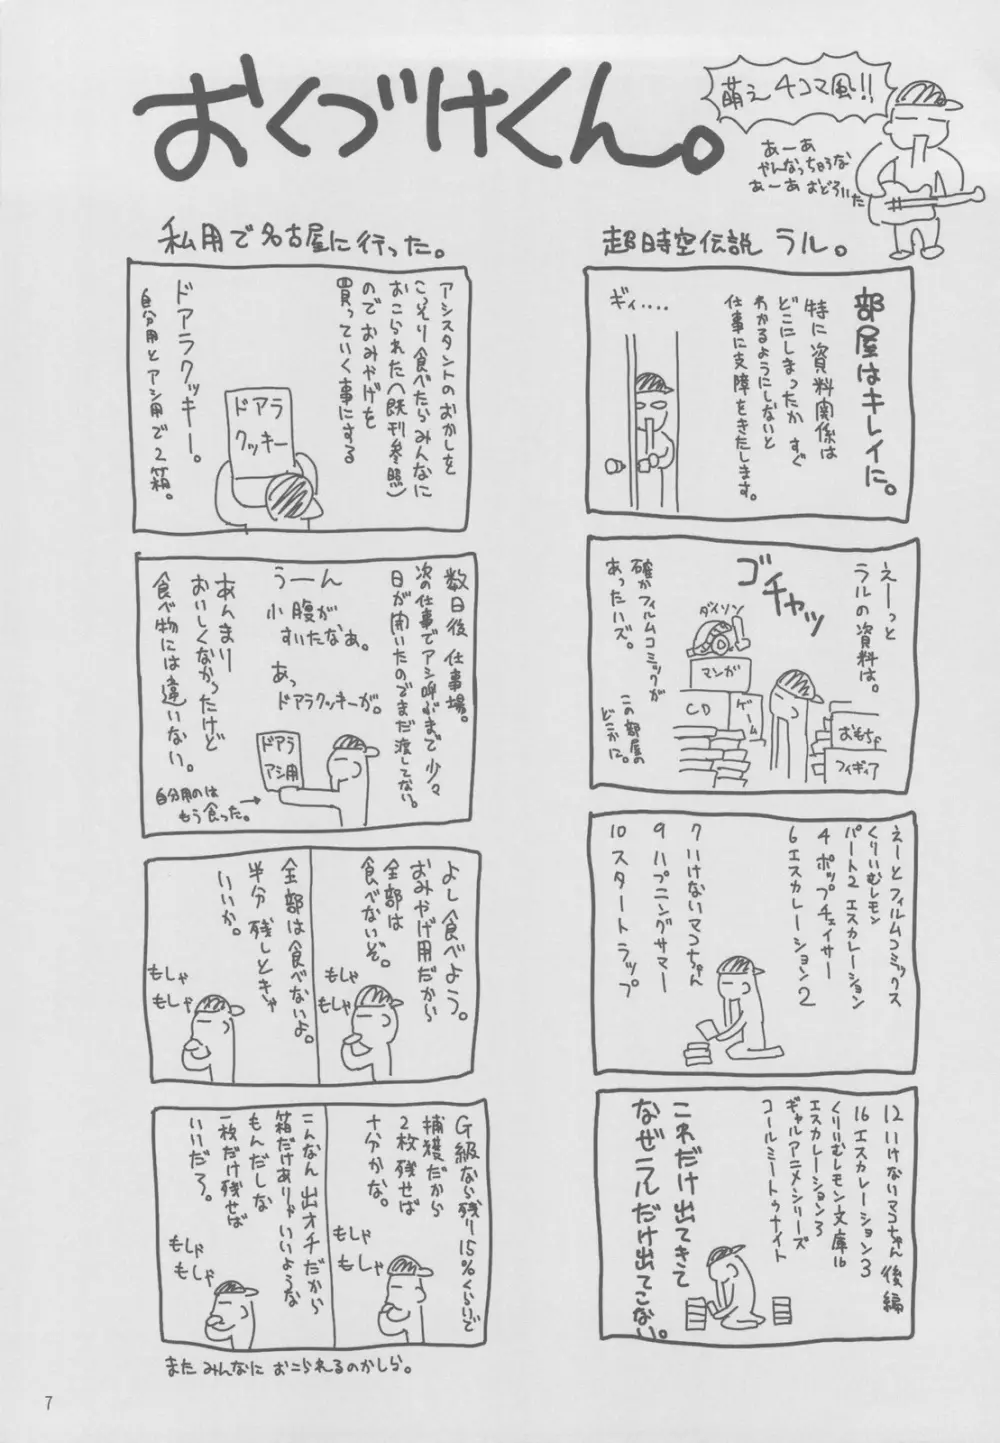 おくづけくん。
萌え4コマ風!!
あーあ
やんなっちゃうな
あーあ おどろいた
超時空伝説 ラル。
部屋はキレイに。
特に資料関係は
どこにしまったか すぐ
わかるようにしないと
仕事に支障をきたします。
ギィ....
えーっと
ラルの資料は。
ゴチャッ
確かフィルムコミックが
あったハズ。
この部屋の
どこかに。
ダイソン
マンガ
CD
ゲーム
おもちゃ
フィギィア
えーとフィルムコミックス
くりぃむレモン
パート2 エスカレーション
4 ポップチェイサー
6 エスカレーション2
7 いけないマコちゃん
9 ハプニングサマー
10 スタートラップ
12 いけないマコちゃん 後編
16 エスカレーション3
くりいむレモン文庫16
エスカレーション3
ギャルアニメシリーズ
コールミートゥナイト
これだけ出てきて
なぜラルだけ出てこない。
私用で名古屋に行った。
アシスタントのおかしを
こっそり食べたらみんなに
おこられた(既刊参照)
のでおみやげを
買っていく事にする
ドアラ
クッキー
ドアラクッキー。
自分用とアシ用で2箱。
数日後 仕事場。
次の仕事でアシ呼ぶまで少々
日が開いたのでまだ渡してない。
うーん
小腹が
すいたなぁ。
あっ
ドアラクッキーが。
ドアラ
アシ用
あんまり
おいしくなかったけど
食べ物には違いない。
自分用のは
もう食った。
よし食べよう。
おみやげ用だから
全部は
食べないぞ。
もしゃ
もしゃ
全部は食べないよ。
半分 残しときゃ
いいか。
もしゃ
もしゃ
G級なら残り15%くらいで
捕獲だから
2枚残せば
十分かな。
もしゃ
もしゃ
こんなん出オチだから
箱だけありゃいいような
もんだしな
一枚だけ残せば
いいだろ。
もしゃ
もしゃ
また みんなに おこられるのかしら。
7